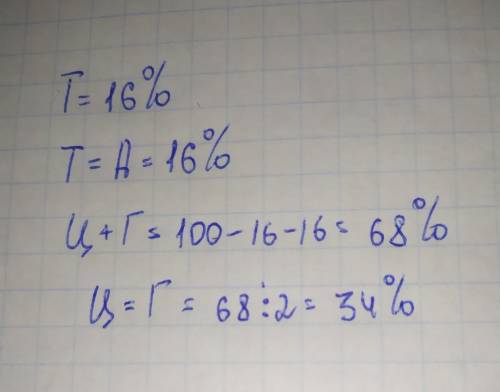 Т = 16%
Т = А = 16%
Ц + Г = 100 - 16 - 16 = 68%
Ц = Г = 68 : 2 = 34%